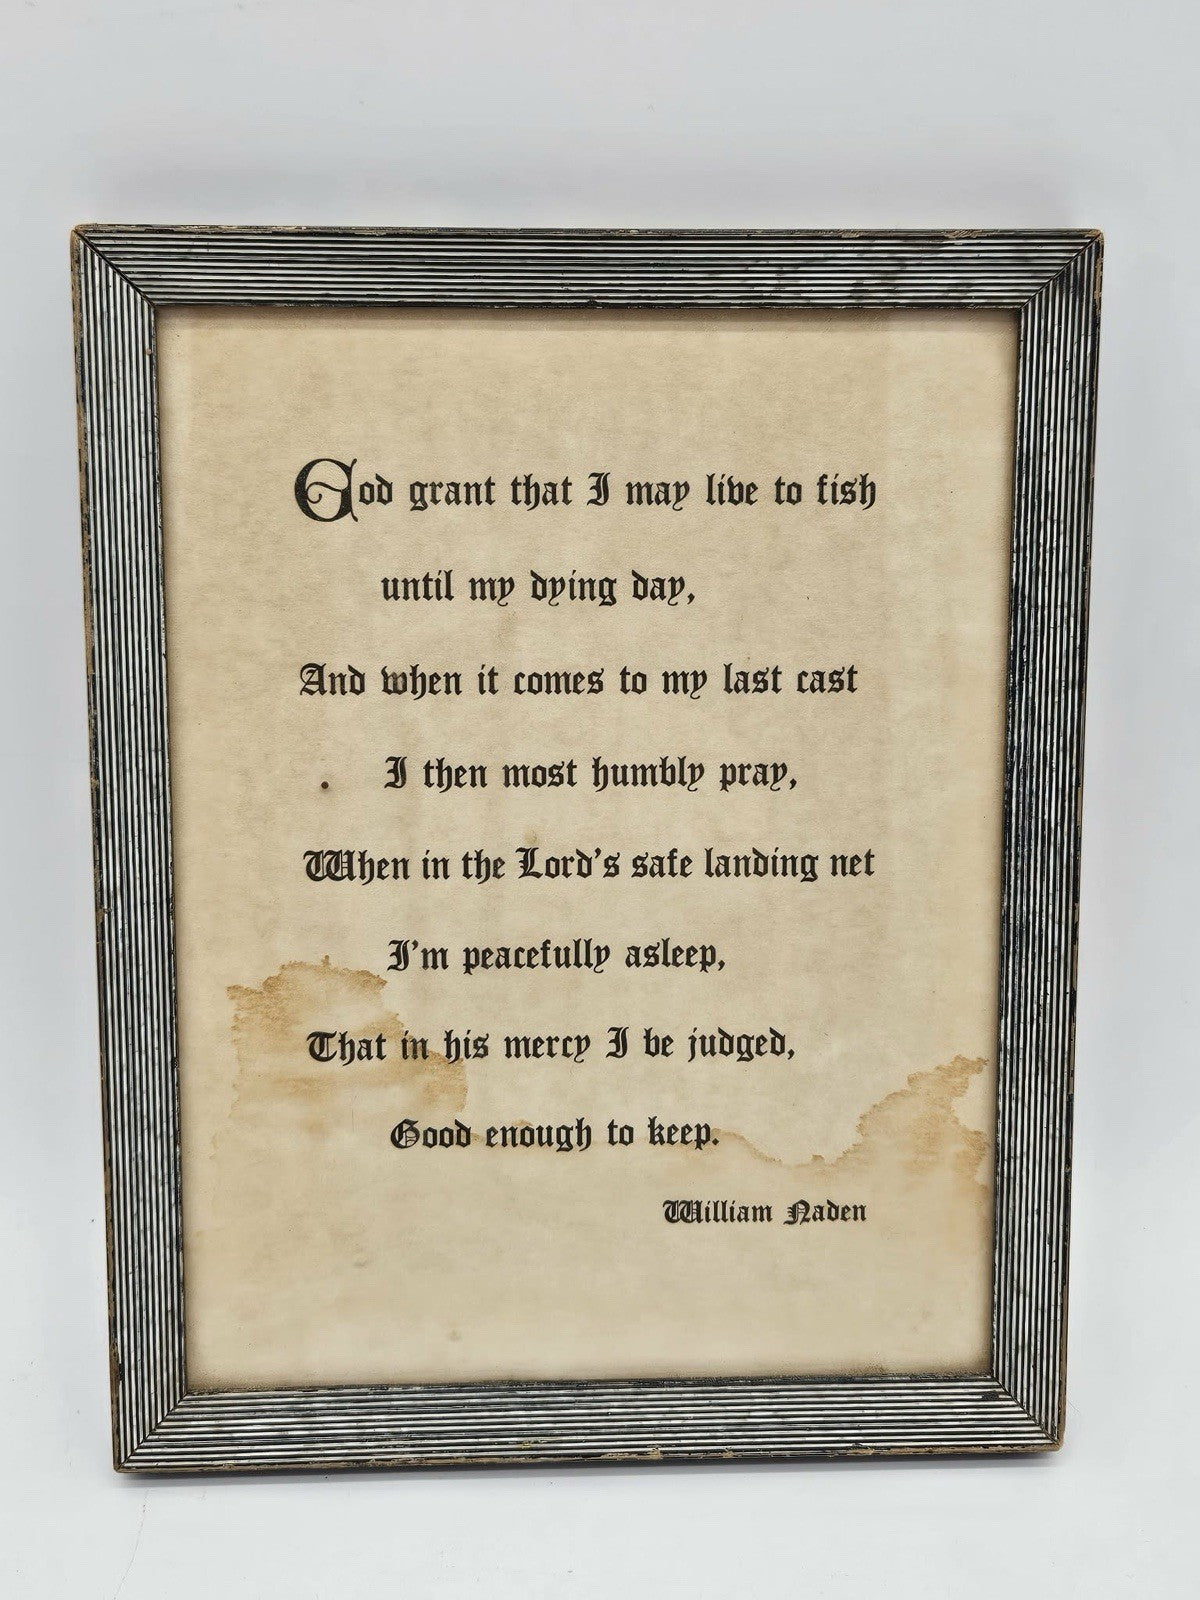 God grant that I may live to fish
until my dying day,
And when it comes to my last cast
I then most humbly pray,
When in the Lord's safe landing net
I'm peacefully asleep,
That in his mercy I be judged,
Good enough to keep.
William Naden